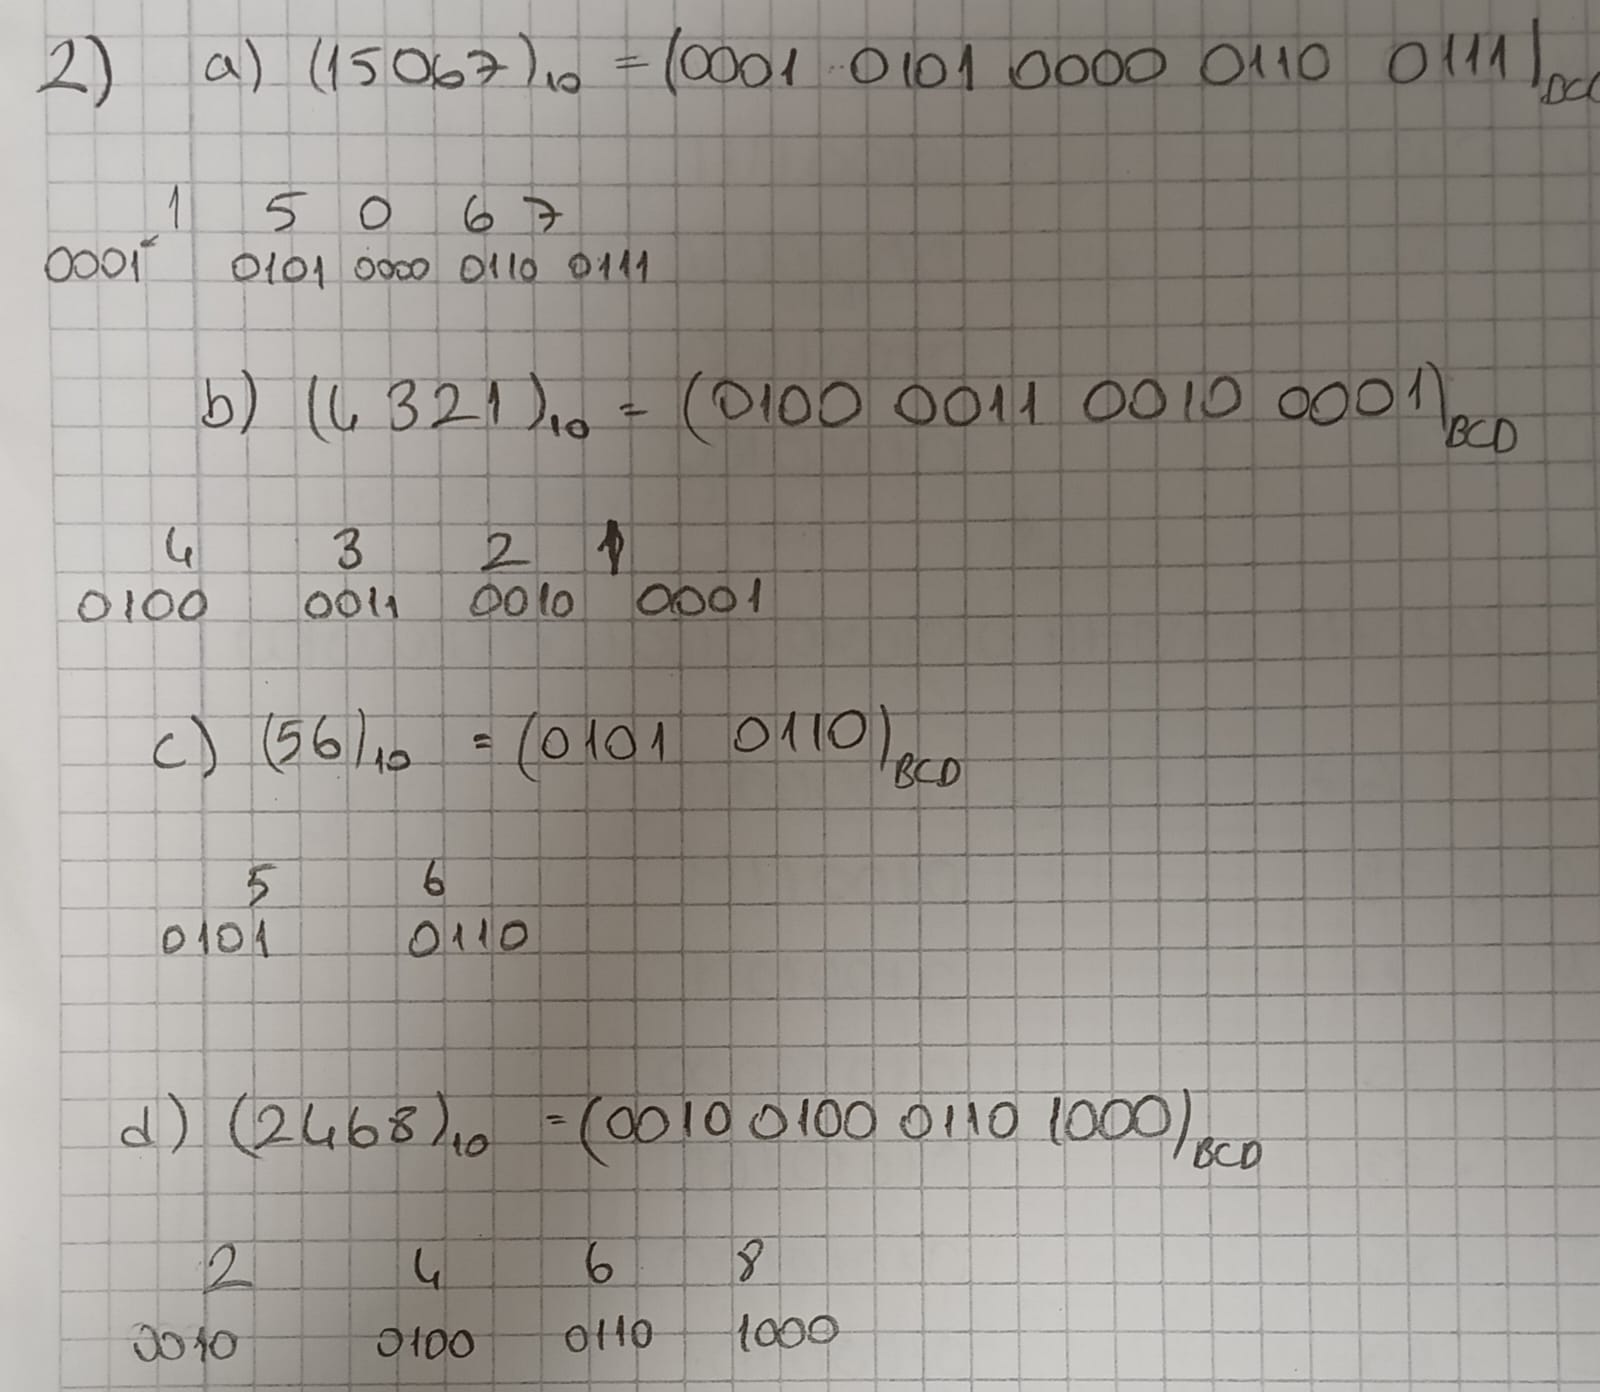 2) a) (15067)₁₀ = (0001 0101 0000 0110 0111)BCD
1 5 0 6 7
0001 0101 0000 0110 0111
b) (4321)₁₀ = (0100 0011 0010 0001)BCD
4 3 2 1
0100 0011 0010 0001
c) (56)₁₀ = (0101 0110)BCD
5 6
0101 0110
d) (2468)₁₀ = (0010 0100 0110 1000)BCD
2 4 6 8
0010 0100 0110 1000